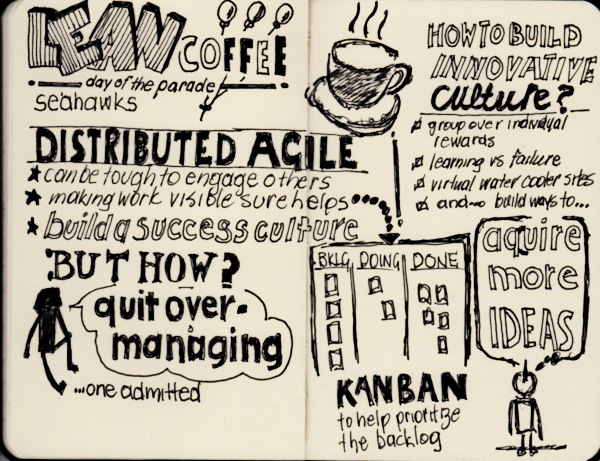 LEAN COFFEE
day of the parade
seahawks
DISTRIBUTED AGILE
can be tough to engage others
making work visible sure helps
build a success culture
BUT HOW?
quit over-
managing
...one admitted
HOW TO BUILD
INNOVATIVE
culture?
group over individual
rewards
learning vs failure
virtual water cooler sites
and~ build ways to...
aquire
more
IDEAS
BKLG DOING DONE
KANBAN
to help prioritize
the backlog